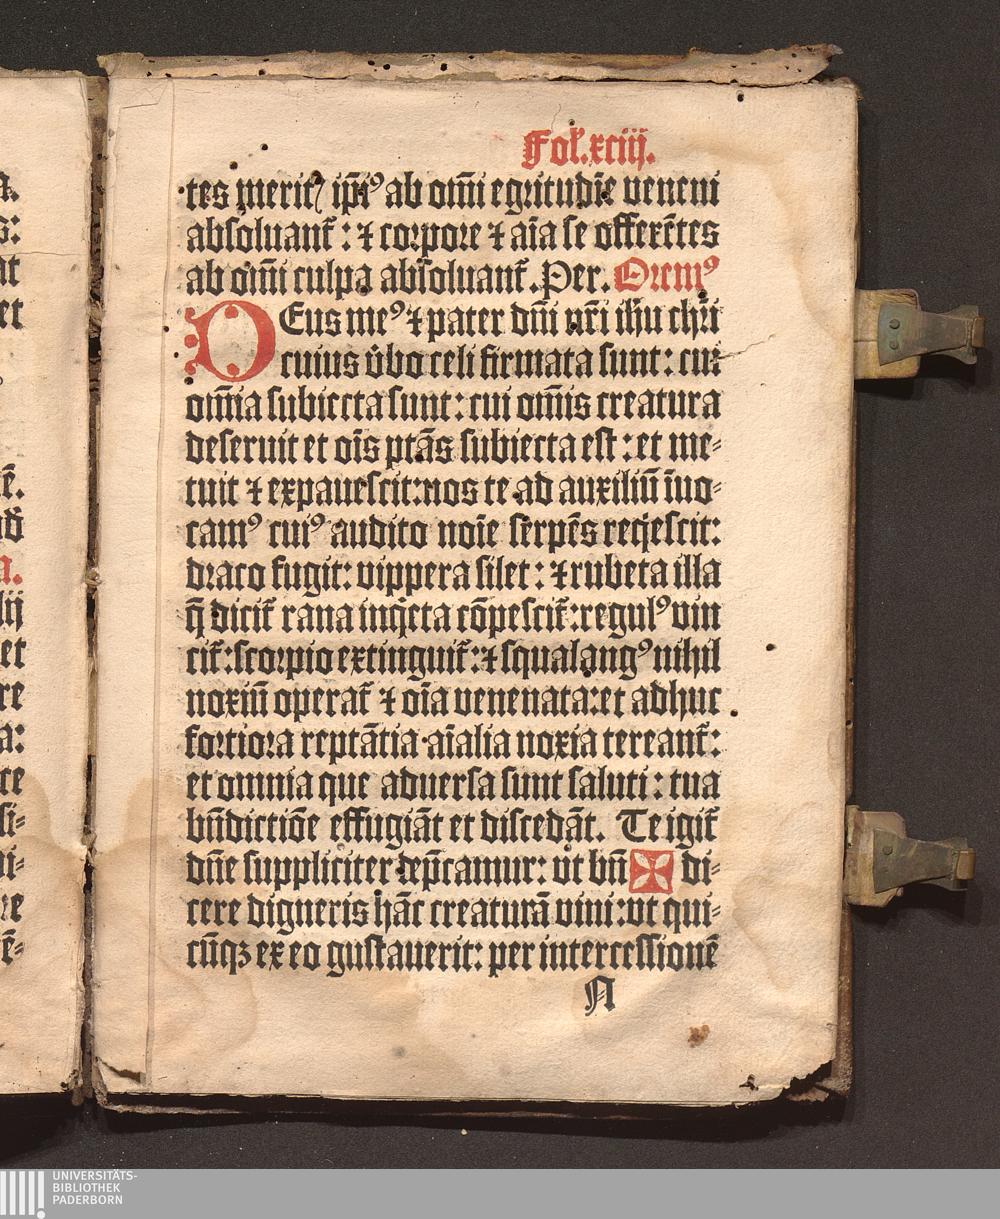 Fol. xciij.
tes meritꝭ ip̄iꝰ ab om̄i egritudīe veneni
absoluant̄ : ⁊ corpore ⁊ aīa se offerētes
ab om̄i culpa absoluant̄. Per. Oremꝰ
DEus meꝰ ⁊ pater dn̄i nr̄i ihū chr̄i
cuius v̄bo celi firmata sunt : cui
om̄ia subiecta sunt : cui om̄is creatura
deseruit et oīs ptās subiecta est : et me-
tuit ⁊ expauescit: nos te ad auxiliū īuo-
camꝰ cuiꝰ audito noīe serpēs reqͥescit:
draco fugit: vippera silet : ⁊ rubeta illa
q̄ dicit̄ rana inqͥeta cōpescit̄: regulꝰ vin
cit̄: scorpio extinguit̄: ⁊ squalangꝰ nihil
noxiū operat̄ ⁊ oīa venenata: et adhuc
fortiora reptātia aīalia noxia tereant̄:
et omnia que aduersa sunt saluti : tua
bn̄dictiōe effugiāt et discedāt. Te igit̄
dn̄e suppliciter dep̄camur: vt bn̄ ✠ di-
cere digneris hāc creaturā vini: vt qui-
cūqꝫ ex eo gustauerit: per intercessionē
N
UNIVERSITÄTS-
BIBLIOTHEK
PADERBORN